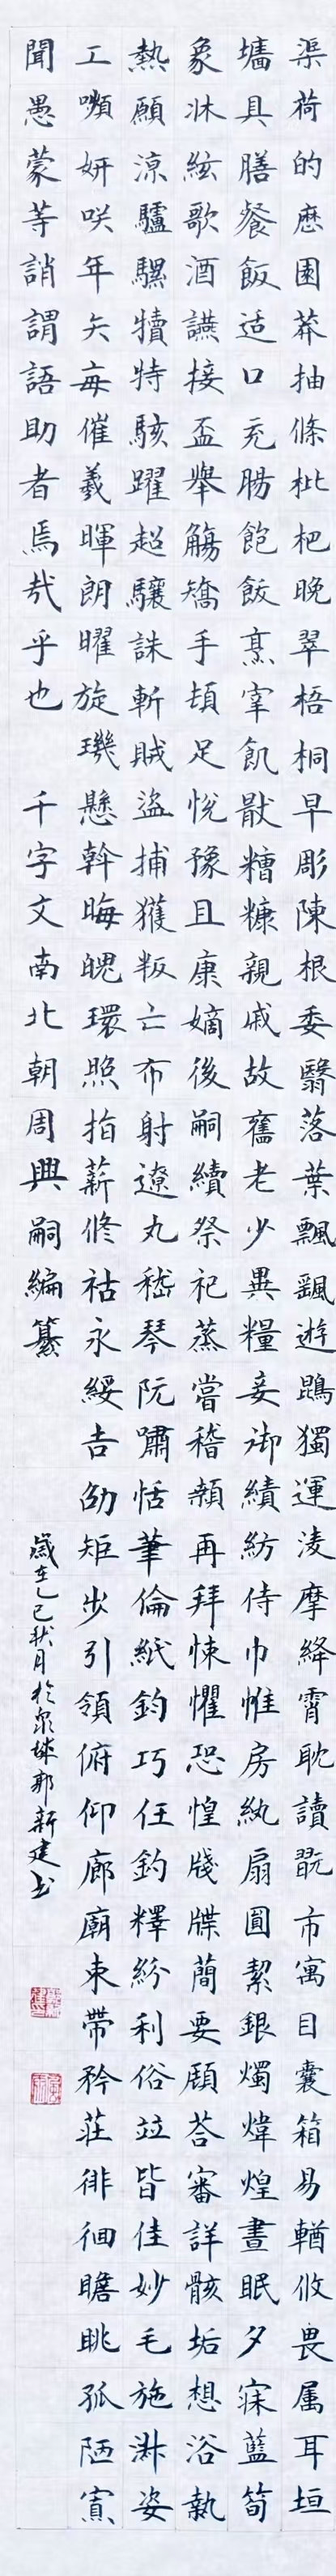 渠荷的歷園莽抽條枇杷晚翠梧桐早彫陳根委翳落葉飄颻遊鵾獨運淩摩絳霄耽讀翫市寓目囊箱易輶攸畏属耳垣
墻具膳餐飯适口充腸飽飫烹宰飢猒糟糠親戚故舊老少異糧妾御績紡侍巾帷房紈扇圓絜銀燭煒煌晝眠夕寐藍筍
象牀絃歌酒讌接盃舉觴矯手頓足悅豫且康嫡後嗣續祭祀蒸嘗稽顙再拜悚懼恐惶牋牒簡要顧荅審詳骸垢想浴執
熱願涼驢騾犢特駭躍超驤誅斬賊盜捕獲叛亡布射遼丸嵇琴阮嘯恬筆倫紙鈞巧任釣釋紛利俗竝皆佳妙毛施淑姿
工嚬妍咲年矢每催羲暉朗曜旋璣懸斡晦魄環照指薪修祜永綏吉劭矩步引領俯仰廊廟束帶矜莊徘徊瞻眺孤陋寡
聞愚蒙等誚謂語助者焉哉乎也 千字文南北朝周興嗣編纂
歲在乙巳秋月於泉城郭新建书